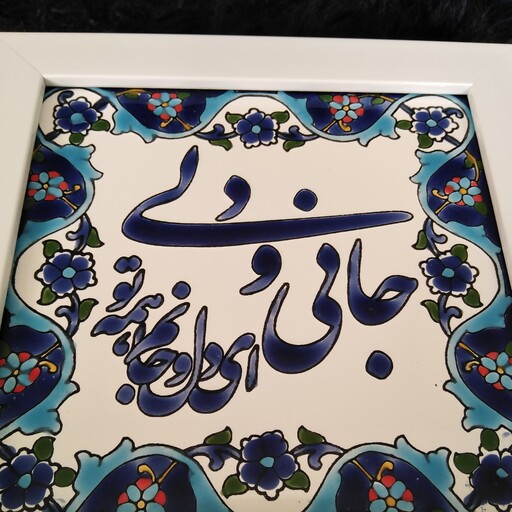 جانی و دلی
ای دل و جانم همه تو